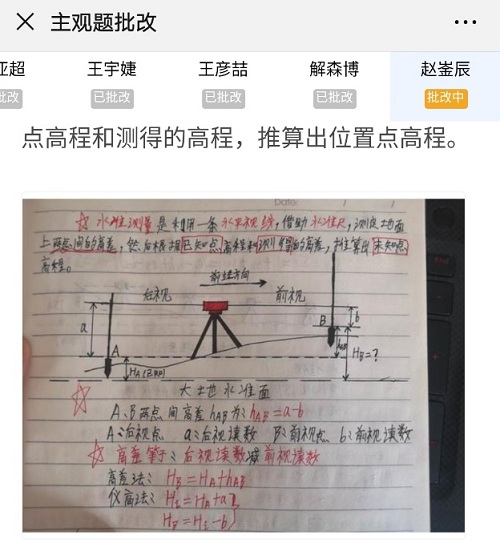 主观题批改
亚超 王宇婕 王彦喆 解森博 赵崟辰
批改 已批改 已批改 已批改 批改中
点高程和测得的高程，推算出位置点高程。
Date:
水准测量是利用一条水平视线，借助水准尺，测定地面
上两点间的高差，然后根据已知点高程和测得的高差，推算出未知点
高程。
前进方向
后视 前视
a b
A B
HA(已知) hAB HB=?
大地水准面
A、B两点间高差hAB为：hAB=a-b
A：后视点 a：后视读数 B：前视点 b：前视读数
高差等于：后视读数减前视读数
高差法：HB=HA+hAB
仪高法：Hi=HA+a
HB=Hi-b